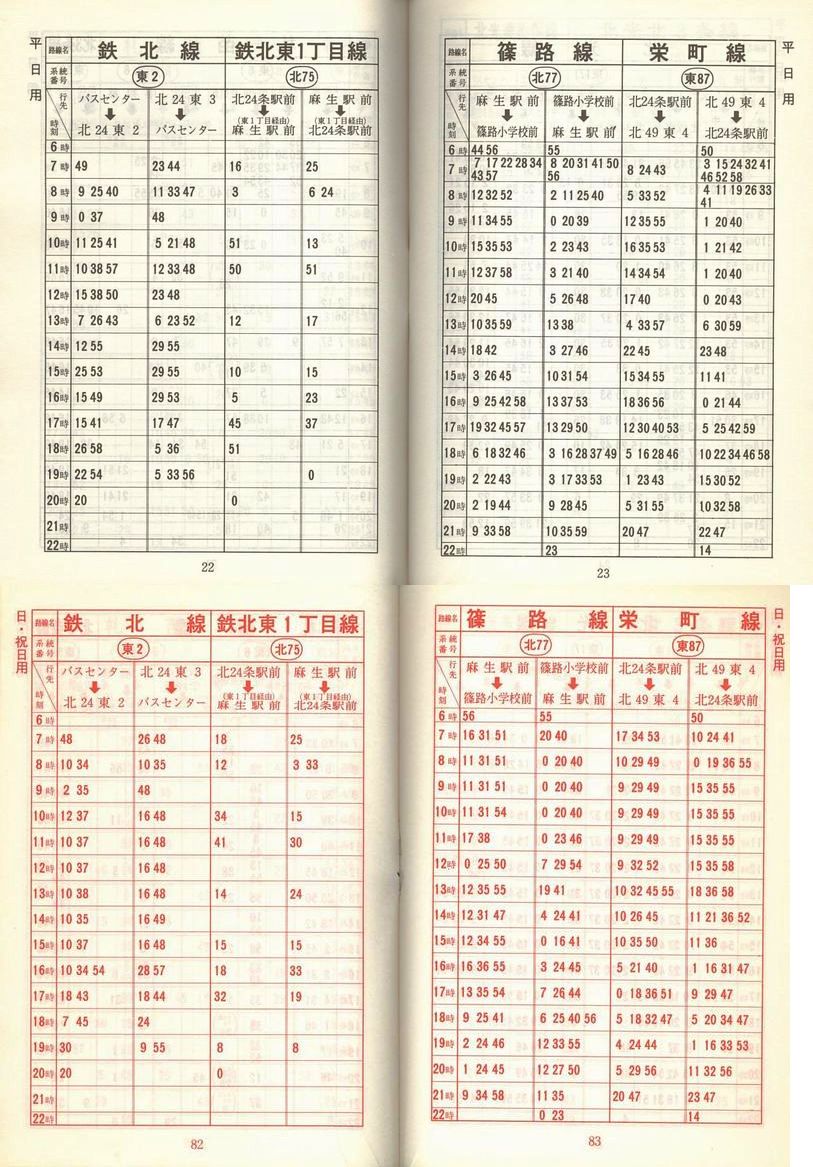 平日用
路線名 鉄北線 鉄北東1丁目線
系統番号 東2 北75
行先 時刻 バスセンター→北24東2 北24東3→バスセンター 北24条駅前→(東1丁目経由)麻生駅前 麻生駅前→(東1丁目経由)北24条駅前
6時
7時 49 23 44 16 25
8時 9 25 40 11 33 47 3 6 24
9時 0 37 48
10時 11 25 41 5 21 48 51 13
11時 10 38 57 12 33 48 50 51
12時 15 38 50 23 48
13時 7 26 43 6 23 52 12 17
14時 12 55 29 55
15時 25 53 29 55 10 15
16時 15 49 29 53 5 23
17時 15 41 17 47 45 37
18時 26 58 5 36 51
19時 22 54 5 33 56 0
20時 20 0
21時
22時
22
平日用
路線名 篠路線 栄町線
系統番号 北77 東87
行先 時刻 麻生駅前→篠路小学校前 篠路小学校前→麻生駅前 北24条駅前→北49東4 北49東4→北24条駅前
6時 44 56 55 50
7時 7 17 22 28 34 43 57 8 20 31 41 50 56 8 24 43 3 15 24 32 41 46 52 58
8時 12 32 52 2 11 25 40 5 33 52 4 11 19 26 33 41
9時 11 34 55 0 20 39 12 35 55 1 20 40
10時 15 35 53 2 23 43 16 35 53 1 21 42
11時 12 37 58 3 21 40 14 34 54 1 20 40
12時 20 45 5 26 48 17 40 0 20 43
13時 10 35 59 13 38 4 33 57 6 30 59
14時 18 42 3 27 46 22 45 23 48
15時 3 26 45 10 31 54 15 34 55 11 41
16時 9 25 42 58 13 37 53 18 36 56 0 21 44
17時 19 32 45 57 13 29 50 12 30 40 53 5 25 42 59
18時 6 18 32 46 3 16 28 37 49 5 16 28 46 10 22 34 46 58
19時 2 22 43 3 17 33 53 1 23 43 15 30 52
20時 2 19 44 9 28 45 5 31 55 10 32 58
21時 9 33 58 10 35 59 20 47 22 47
22時 23 14
23
日・祝日用
路線名 鉄北線 鉄北東1丁目線
系統番号 東2 北75
行先 時刻 バスセンター→北24東2 北24東3→バスセンター 北24条駅前→(東1丁目経由)麻生駅前 麻生駅前→(東1丁目経由)北24条駅前
6時
7時 48 26 48 18 25
8時 10 34 10 35 12 3 33
9時 2 35 48
10時 12 37 16 48 34 15
11時 10 37 16 48 41 30
12時 10 37 16 48
13時 10 38 16 48 14 24
14時 10 35 16 49
15時 10 37 16 48 15 15
16時 10 34 54 28 57 18 33
17時 18 43 18 44 32 19
18時 7 45 24
19時 30 9 55 8 8
20時 20 0
21時
22時
82
日・祝日用
路線名 篠路線 栄町線
系統番号 北77 東87
行先 時刻 麻生駅前→篠路小学校前 篠路小学校前→麻生駅前 北24条駅前→北49東4 北49東4→北24条駅前
6時 56 55 50
7時 16 31 51 20 40 17 34 53 10 24 41
8時 11 31 51 0 20 40 10 29 49 0 19 36 55
9時 11 31 51 0 20 40 9 29 49 15 35 55
10時 11 31 54 0 20 40 9 29 49 15 35 55
11時 17 38 0 23 46 9 29 49 15 35 55
12時 0 25 50 7 29 54 9 32 52 15 35 58
13時 12 35 55 19 41 10 32 45 55 18 36 58
14時 12 31 47 4 24 41 10 26 45 11 21 36 52
15時 12 34 55 0 16 41 10 35 50 11 36
16時 16 36 55 3 24 45 5 21 40 1 16 31 47
17時 13 35 54 7 26 44 0 18 36 51 9 29 47
18時 9 25 41 6 25 40 56 5 18 32 47 5 20 34 47
19時 2 24 46 12 33 55 4 24 44 1 16 33 53
20時 1 24 45 12 27 50 5 29 56 11 32 56
21時 9 34 58 11 35 20 47 23 47
22時 0 23 14
83